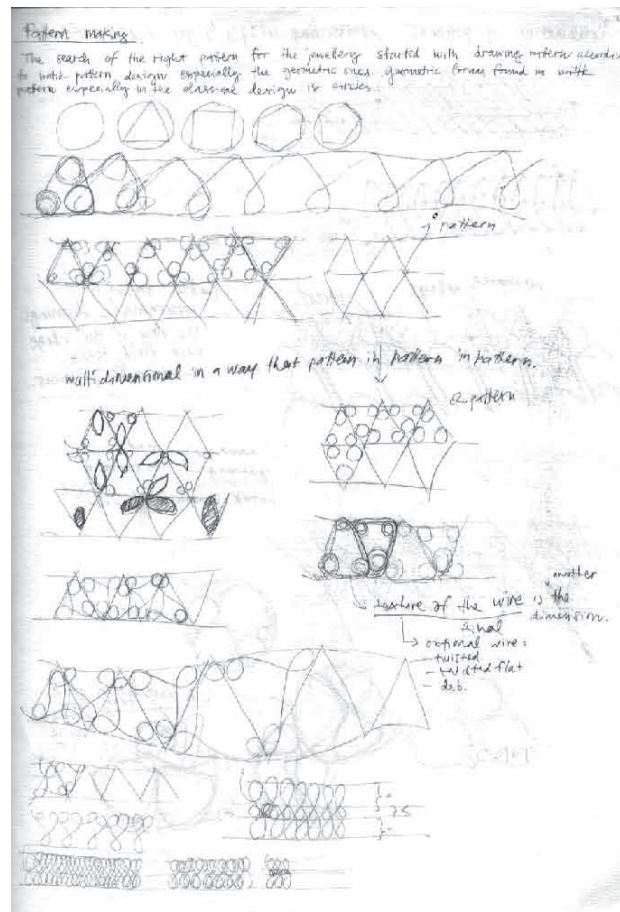 Pattern making.
The search of the right pattern for the jewellery started with drawing pattern according
to batik pattern design especially the geometric ones. geometric forms found in batik
pattern especially in the classical design is circles.
pattern
multidimensional in a way that pattern in pattern in pattern.
pattern
another
texture of the wire is the
dimension.
optional wire:
- twisted
- twisted flat
- dsb.